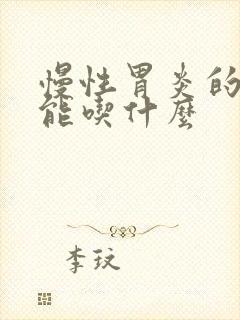 慢性胃炎的
能喫什麼
李玟